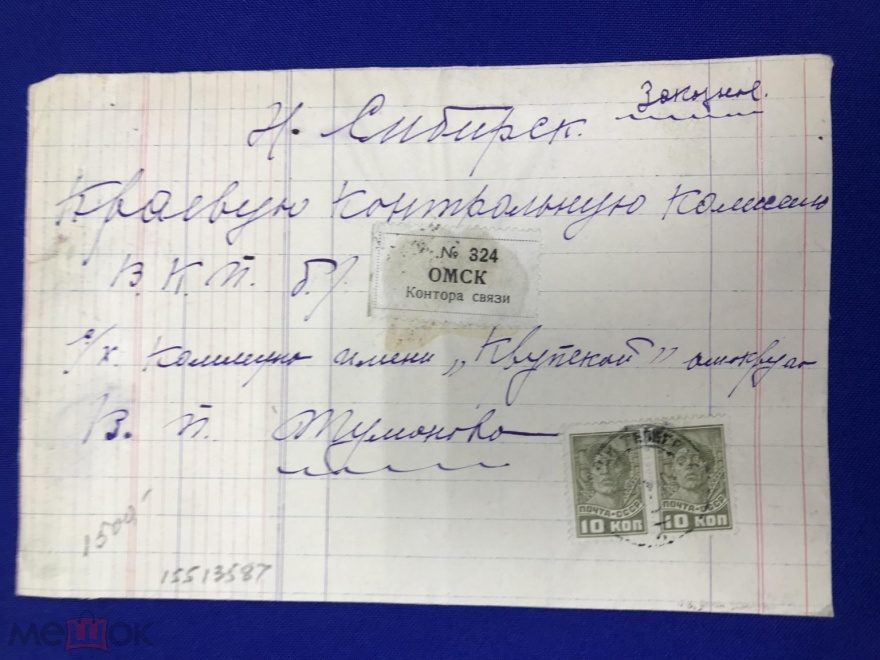 Заказное.
Н. Сибирск.
Краевую Контрольную Комиссию
В. К. П. б./
№ 324
ОМСК
Контора связи
с/х. Коммуна имени „Крупской"
В. П. Тумонова
ТЕЛЕГР
ПОЧТА-СССР ПОЧТА-СССР
10 КОП 10 КОП
1500,-
15513587
мешок